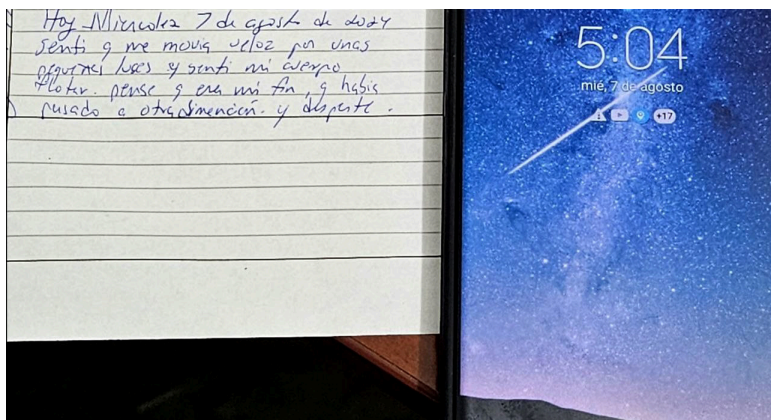 Hoy Miercolez 7 de agosto de 2024
Senti q me movia veloz por unas
pequeñas luces y senti mi cuerpo
flotar. pense q era mi fin, q habia
pasado a otra dimención. y desperte.
5:04
mié, 7 de agosto
+17